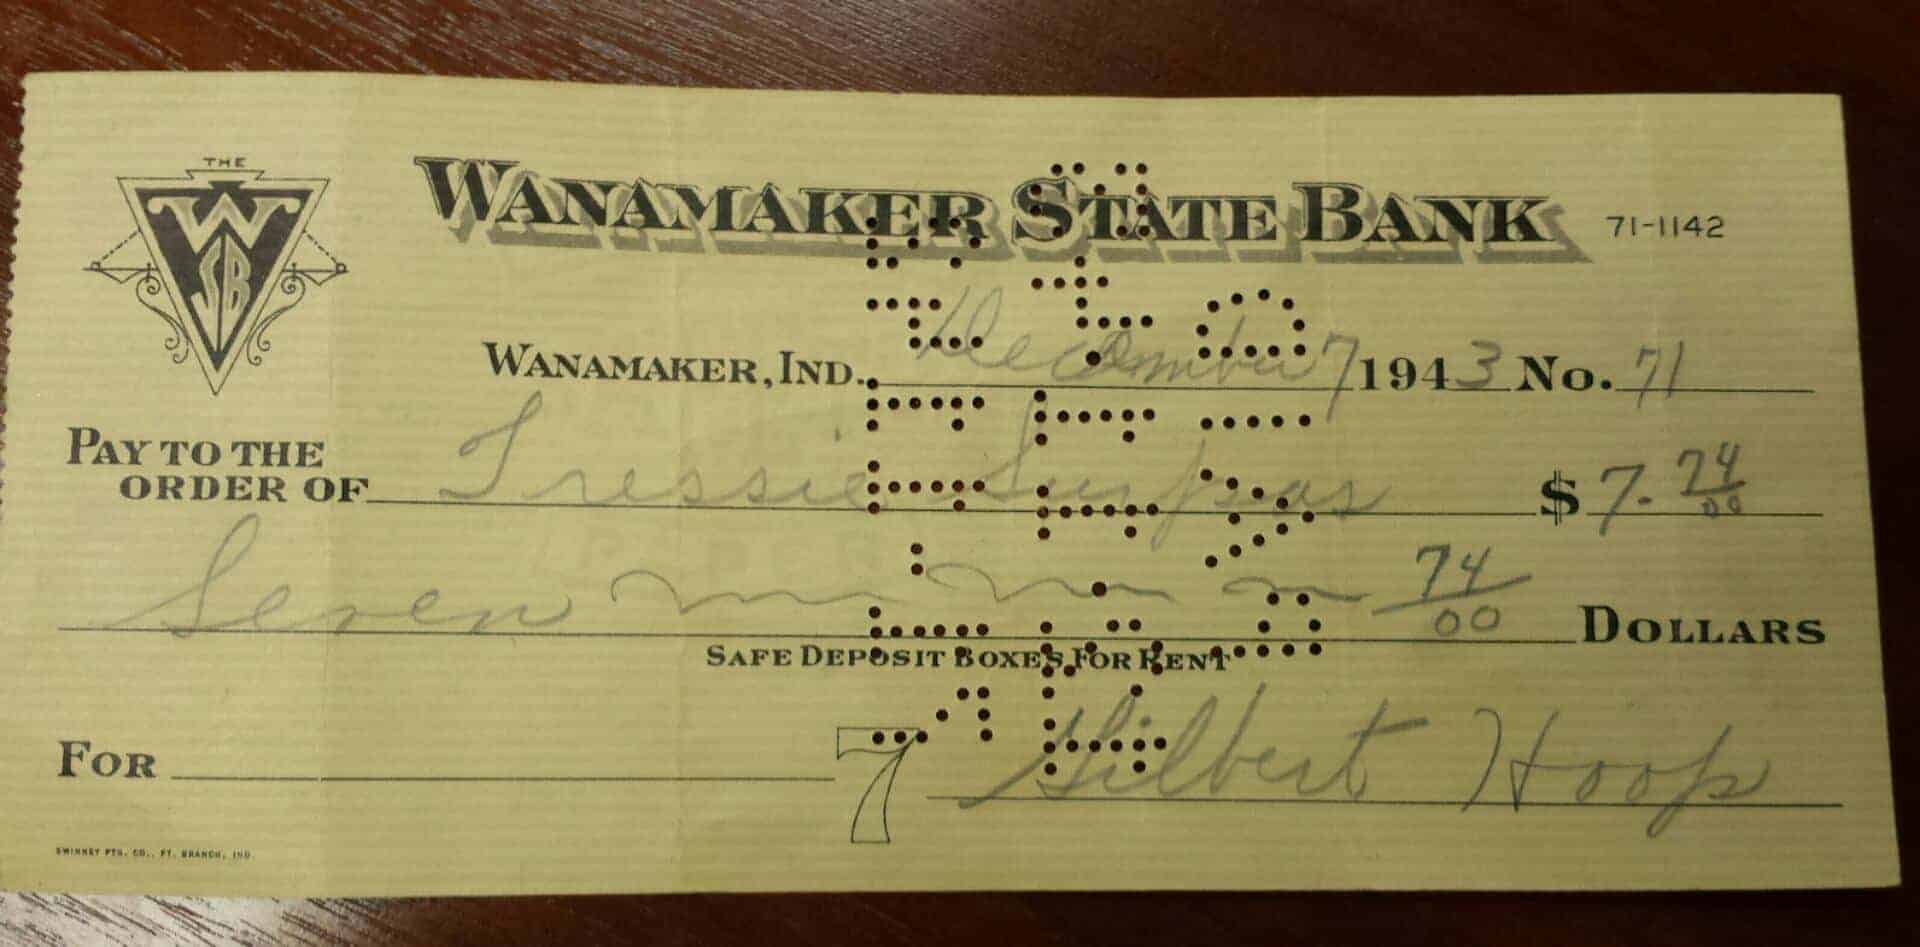 THE
WSB
WANAMAKER STATE BANK 71-1142
WANAMAKER, IND. December 7 1943 No. 71
PAY TO THE
ORDER OF Tressie $ 7. 74/00
Seven 74/00 DOLLARS
SAFE DEPOSIT BOXES FOR RENT
FOR 7 Gilbert Hoop
SWINNEY PTG. CO., FT. BRANCH, IND.